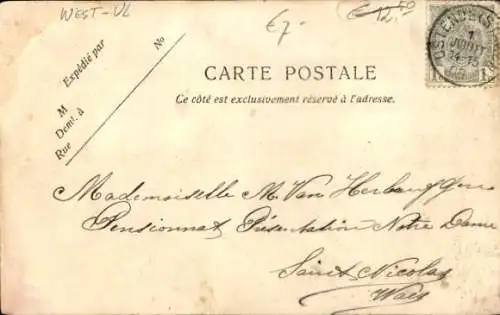 WEST-VL
€7-
€12.50
Expédié par
No
M
Demt. à
Rue
CARTE POSTALE
Ce côté est exclusivement réservé à l'adresse.
OSTENDE
1
JUIL
1
Mademoiselle M. Van
Pensionnat Présentation Notre Dame
Saint Nicolas
Waes